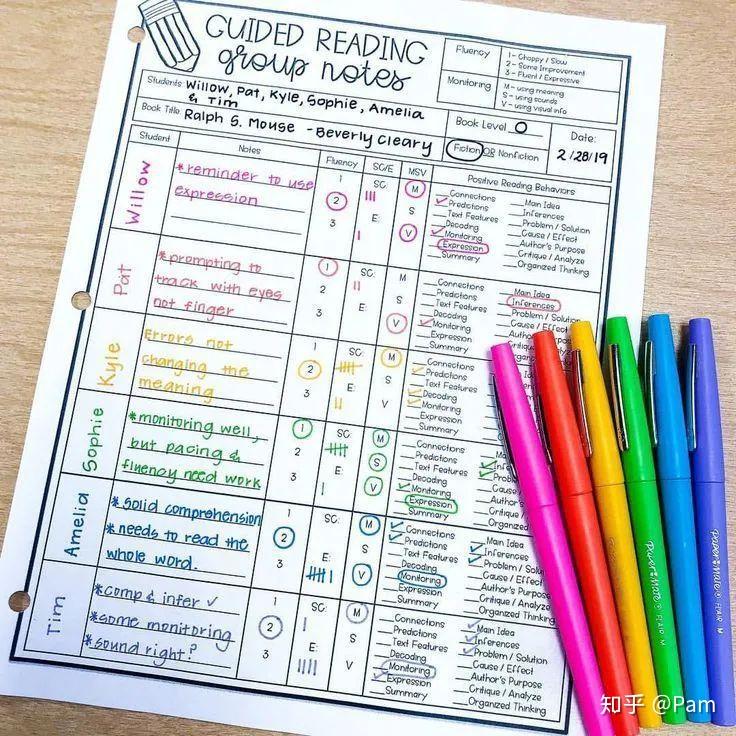 GUIDED READING
group notes
Fluency
1 - Choppy / Slow
2 - Some Improvement
3 - Fluent / Expressive
Monitoring
M - using meaning
S - using sounds
V - using visual info
Students: Willow, Pat, Kyle, Sophie, Amelia
& Tim
Book Title: Ralph S. Mouse - Beverly Cleary
Book Level O
Fiction OR Nonfiction
Date:
2/28/19
Student
Notes
Fluency
SC/E
MSV
Positive Reading Behaviors
Willow
*reminder to use
expression
1
2
3
SC:
E:
M
S
V
Connections
Predictions
Text Features
Decoding
Monitoring
Expression
Summary
Main Idea
Inferences
Problem / Solution
Cause / Effect
Author's Purpose
Critique / Analyze
Organized Thinking
Pat
*prompting to
track with eyes
not finger
1
2
3
SC:
E:
M
S
V
Connections
Predictions
Text Features
Decoding
Monitoring
Expression
Summary
Main Idea
Inferences
Problem / Solution
Cause / Effect
Kyle
Errors not
changing the
meaning
1
2
3
SC:
E:
M
S
V
Connections
Predictions
Text Features
Decoding
Monitoring
Expression
Summary
Sophie
*monitoring well,
but pacing &
fluency need work
1
2
3
SC:
E:
M
S
V
Connections
Predictions
Text Features
Decoding
Monitoring
Expression
Summary
Critique /
Organized
Amelia
*solid comprehension
*needs to read the
whole word.
1
2
3
SC:
E:
M
S
V
Connections
Predictions
Text Features
Decoding
Monitoring
Expression
Summary
Main Idea
Inferences
Problem / Solution
Cause / Effect
Author's Purpose
Critique / Analyze
Organized Thinking
Tim
*comp & infer ✓
*some monitoring
*sound right?
1
2
3
SC:
E:
M
S
V
Connections
Predictions
Text Features
Decoding
Monitoring
Expression
Summary
Main Idea
Inferences
Problem / Solution
Cause / Effect
Author's Purpose
Critique / Analyze
Organized Thinking
Paper Mate FLAIR M
Paper Mate FLAIR M
知乎 @Pam